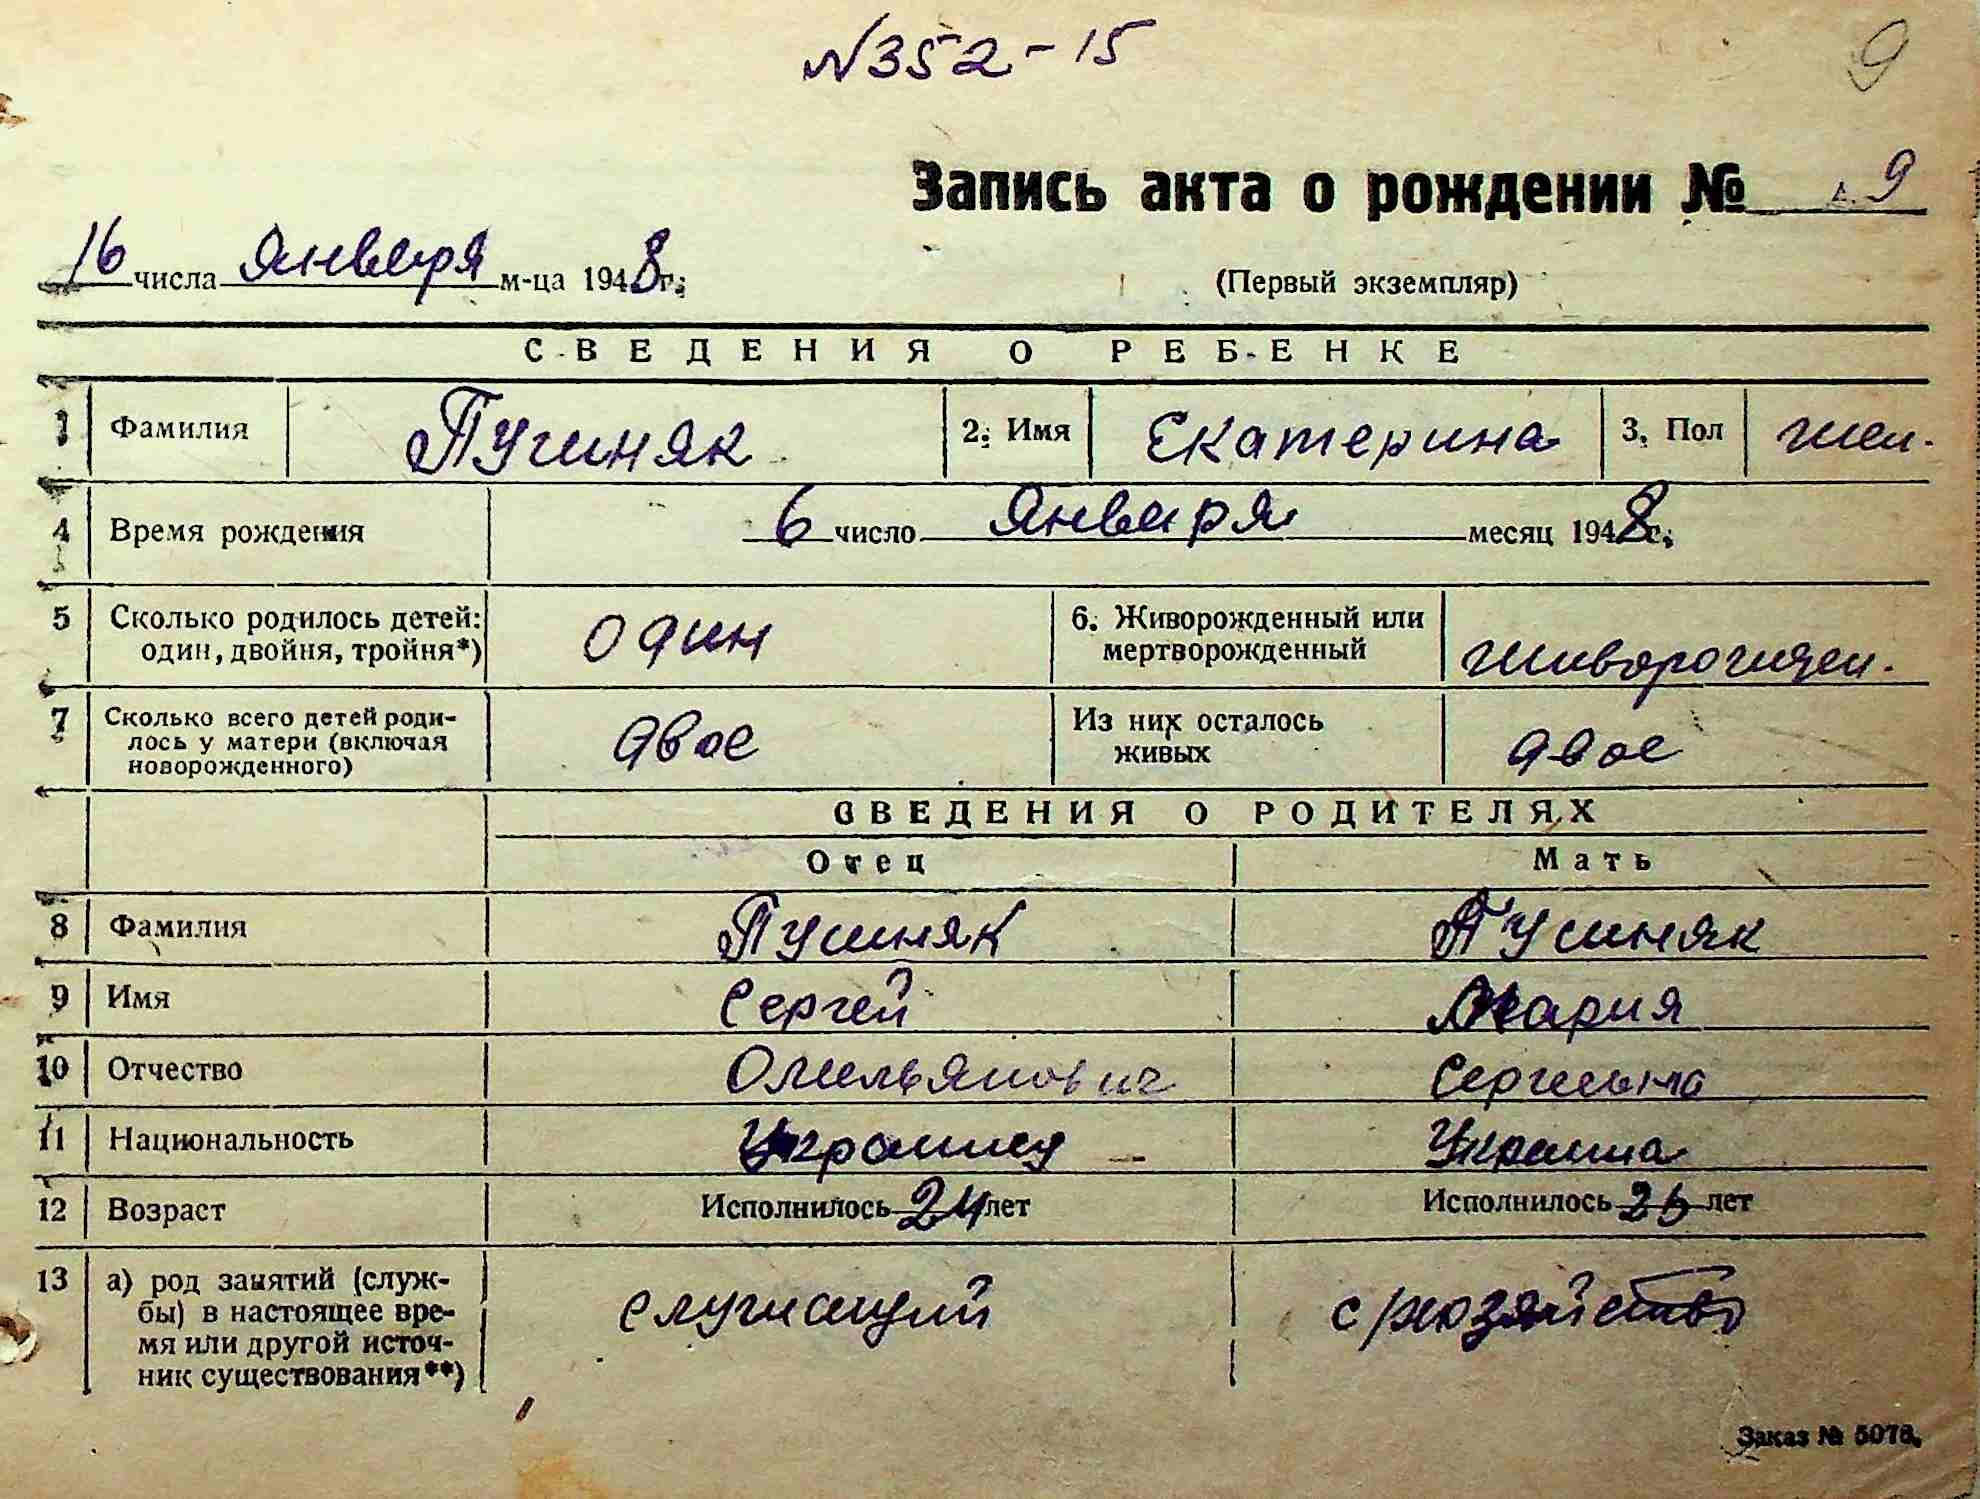 N352-15
9
Запись акта о рождении № 9
16 числа января м-ца 1948 г.
(Первый экземпляр)
СВЕДЕНИЯ О РЕБЕНКЕ
1 Фамилия Пушняк 2. Имя Екатерина 3. Пол жен.
4 Время рождения 6 число января месяц 1948 г.
5 Сколько родилось детей: один 6. Живорожденный или живорожден.
один, двойня, тройня*) мертворожденный
7 Сколько всего детей роди- двое Из них осталось двое
лось у матери (включая живых
новорожденного)
СВЕДЕНИЯ О РОДИТЕЛЯХ
Отец Мать
8 Фамилия Пушняк Пушняк
9 Имя Сергей Мария
10 Отчество Омельянович
11 Национальность Украинец Украинка
12 Возраст Исполнилось 24 лет Исполнилось лет
13 а) род занятий (служ- служащий с/хозяйство
бы) в настоящее вре-
мя или другой источ-
ник существования**)
Заказ № 5076.